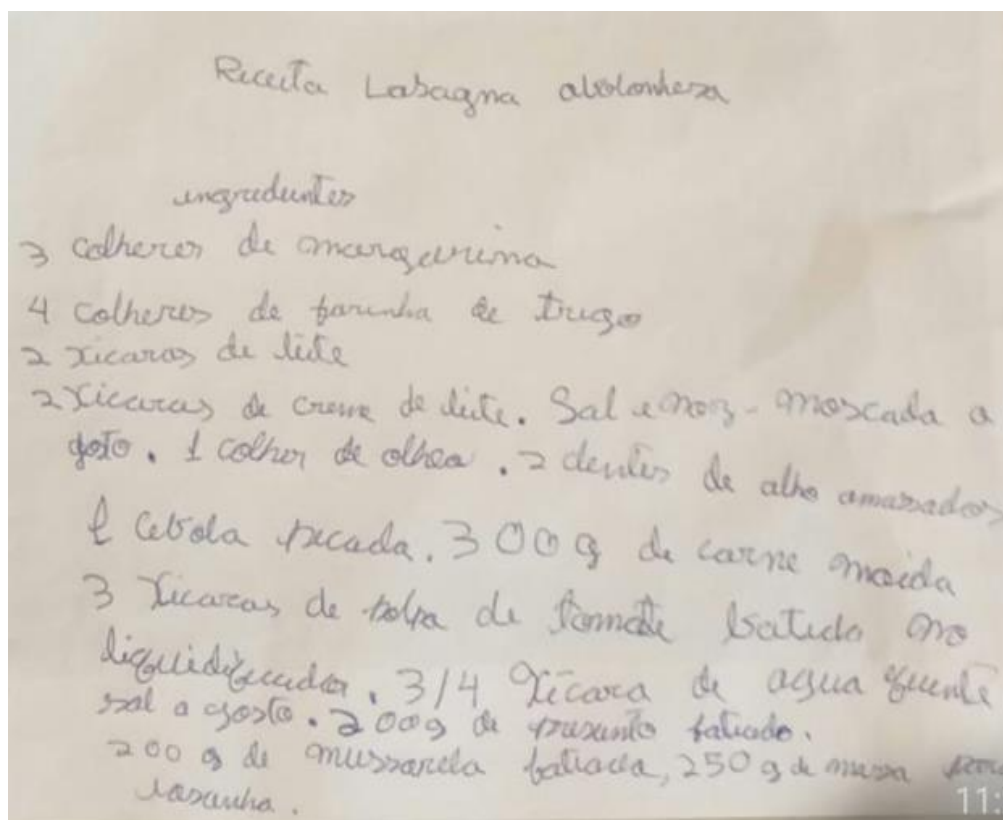 Receita Lasagna abolonheza
ingredientes
3 colheres de margarina
4 colheres de farinha de trigo
2 xicaras de leite
2 xicaras de creme de leite. Sal e noz-moscada a
gosto. 1 colher de olheo. 2 dentes de alho amassados
1 cebola picada. 300g de carne moida
3 xicaras de polpa de tomate batido no
liquidificador. 3/4 xicara de agua quente
sal a gosto. 200g de presunto fatiado.
200 g de mussarela fatiada, 250 g de massa para
lasanha.
11: